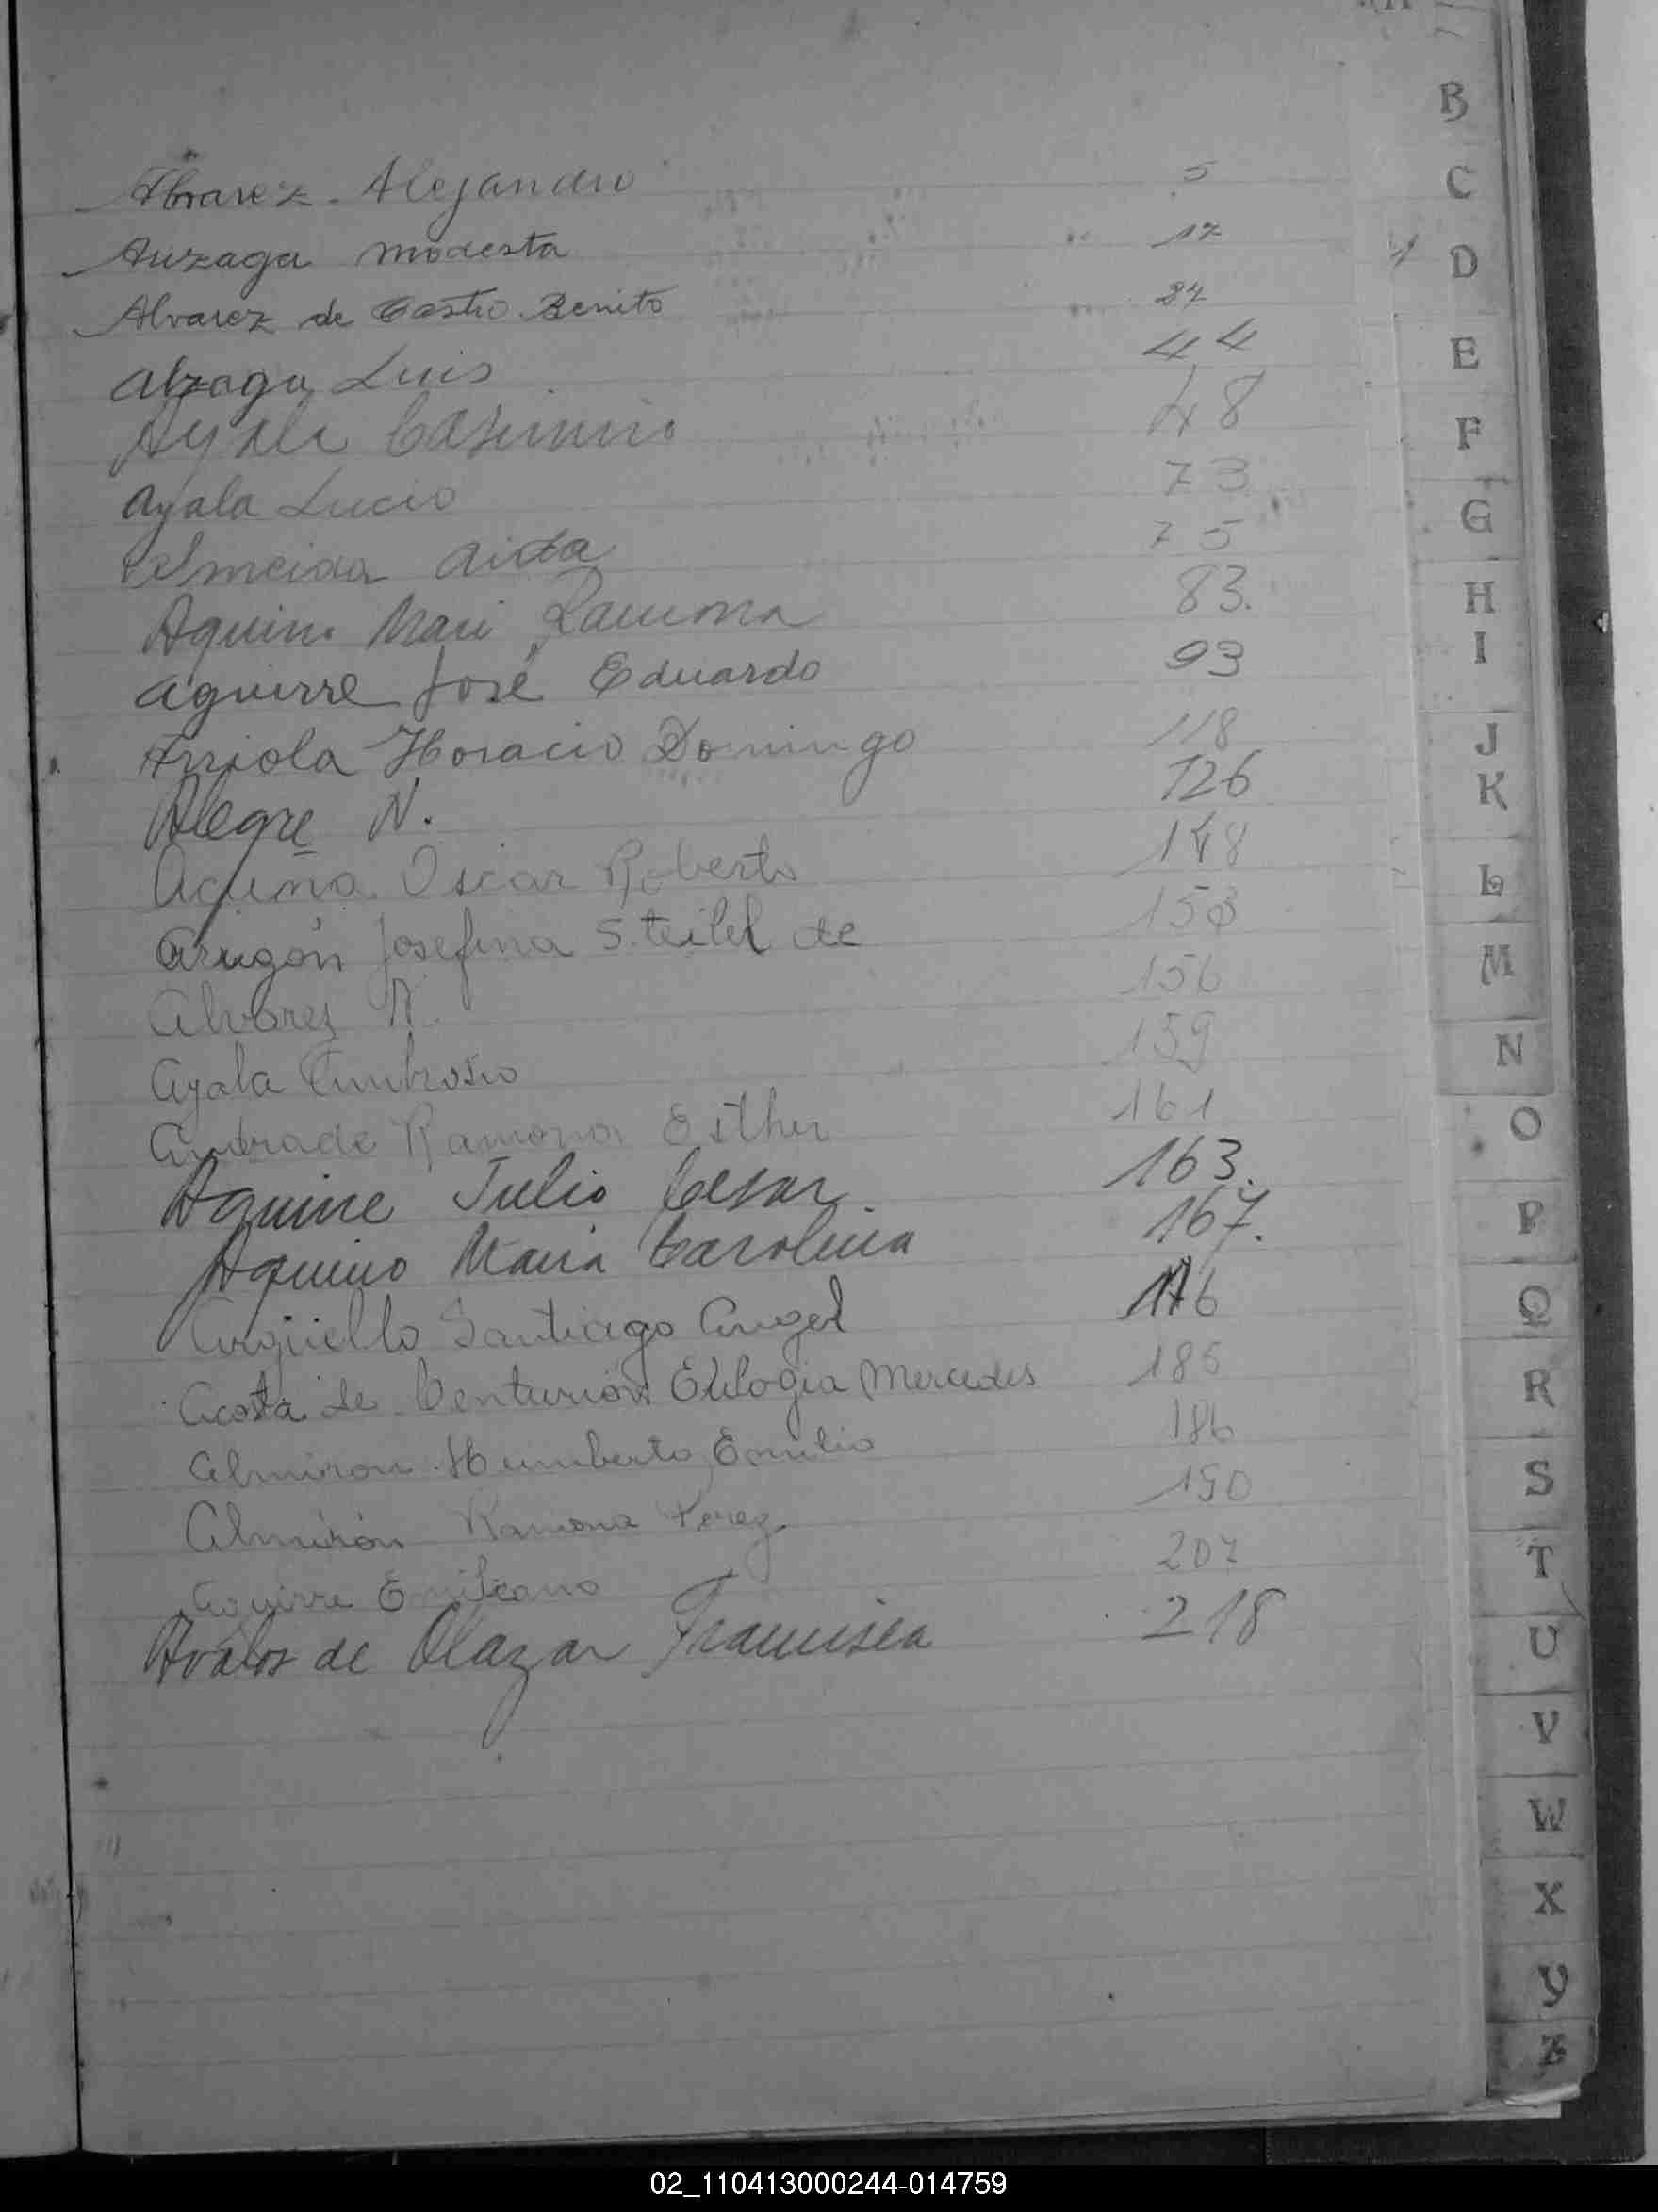 Alvarez Alejandro 5
Auzaga Modesta 17
Alvarez de Castro Benito 24
Alzaga Luis 44
Ayala Casimiro 48
Ayala Lucio 73
Almeida Aida 75
Aquino Mari Ramona 83.
Aguirre José Eduardo 93
Arriola Horacio Domingo 118
Alegre N. 126
Acuña Oscar Roberto 148
Aragón Josefina S. de 153
Alvarez N. 156
Ayala Ambrosio 159
Andrade Ramona Esther 161
Aquine Julio Cesar 163.
Aquino Maria Carolina 167.
Argüello Santiago Angel 176
Acosta de Centurión Eulogia Mercedes 185
Almiron Humberto Emilio 186
Almirón Ramona Perez 190
Aguirre Emiliano 207
Avalos de Olazar Francisca 218
B
C
D
E
F
G
H
I
J
K
L
M
N
O
P
Q
R
S
T
U
V
W
X
Y
Z
02_110413000244-014759